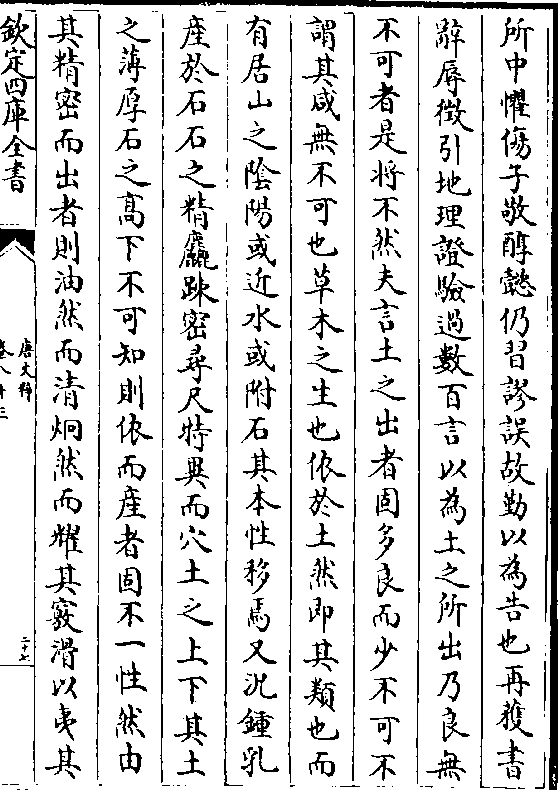 所中懼傷子敬醇懿仍習謬誤故勤以為告也再獲書
辭辱徵引地理證驗過數百言以為土之所出乃良無
不可者是將不然夫言土之出者固多良而少不可不
謂其咸無不可也草木之生也依於土然即其類也而
有居山之陰陽或近水或附石其本性移焉又況鍾乳
產於石石之精麤踈密尋尺特異而穴土之上下其土
之薄厚石之高下不可知則依而產者固不一性然由
其精密而出者則油然而清炯然而耀其竅滑以夷其
欽定四庫全書
唐文粹
卷八十三
二十七